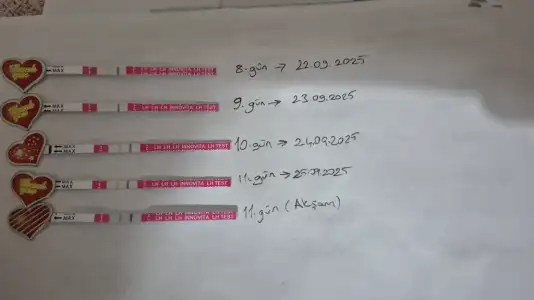 MAX LH LH LH INNOVITA LH TEST 8.gün → 22.09.2025
MAX LH LH LH INNOVITA LH TEST 9.gün → 23.09.2025
MAX LH LH LH INNOVITA LH TEST 10.gün → 24.09.2025
MAX LH LH LH INNOVITA LH TEST 11.gün → 25.09.2025
MAX LH LH LH INNOVITA LH TEST 11.gün (Akşam)